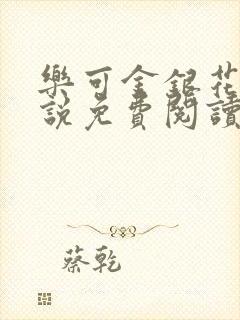 樂可金銀花
說免費閱讀
蔡乾